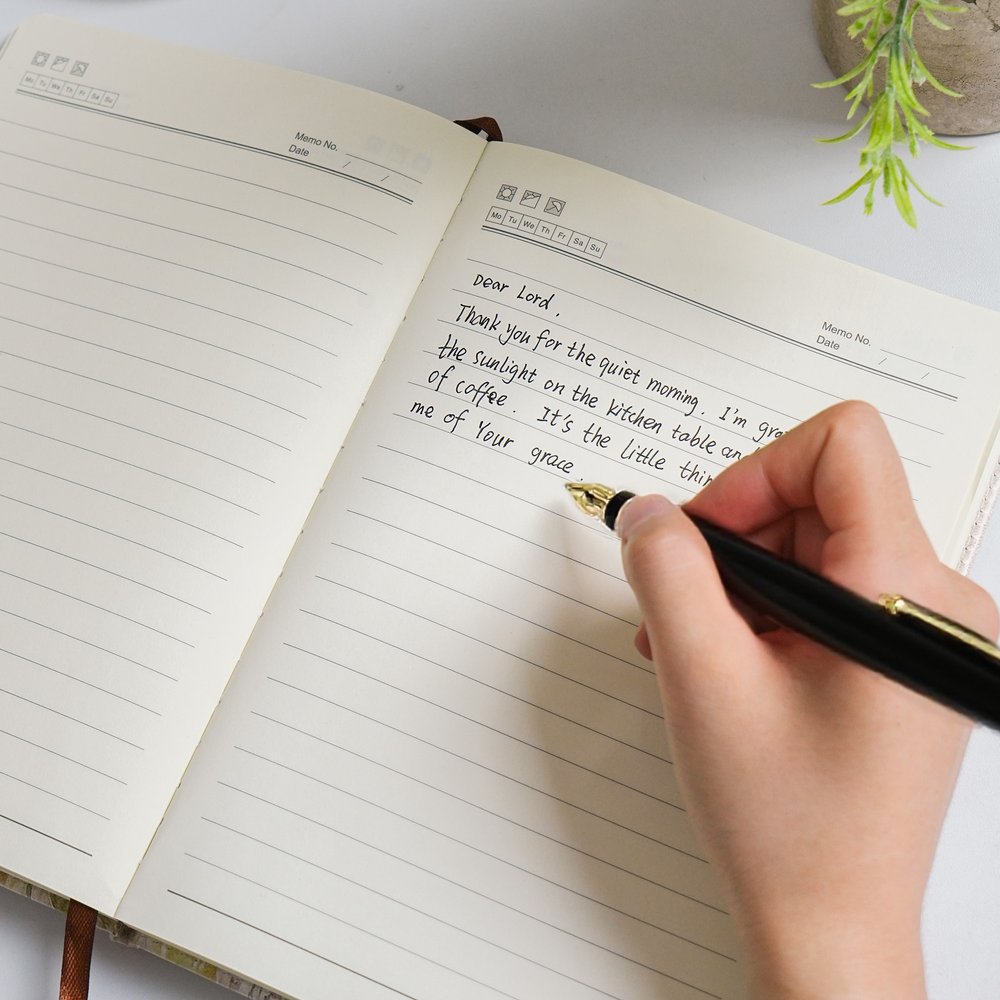 Mo Tu We Th Fr Sa Su
Memo No.
Date / /
Mo Tu We Th Fr Sa Su
Memo No.
Date / /
Dear Lord,
Thank you for the quiet morning. I'm
the sunlight on the kitchen table
of coffee. It's the little
me of Your grace.